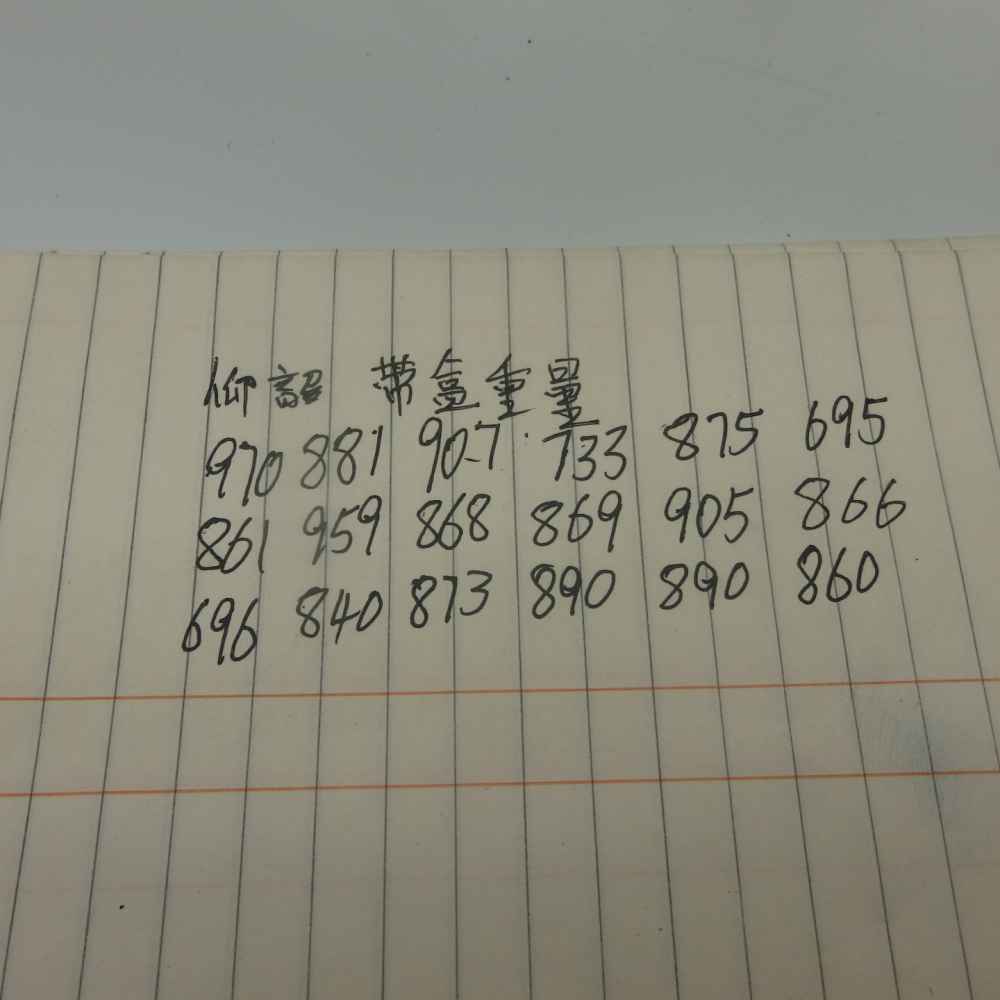 仰韶 帶盒重量
970 881 907 733 875 695
861 959 868 869 905 866
696 840 873 890 890 860